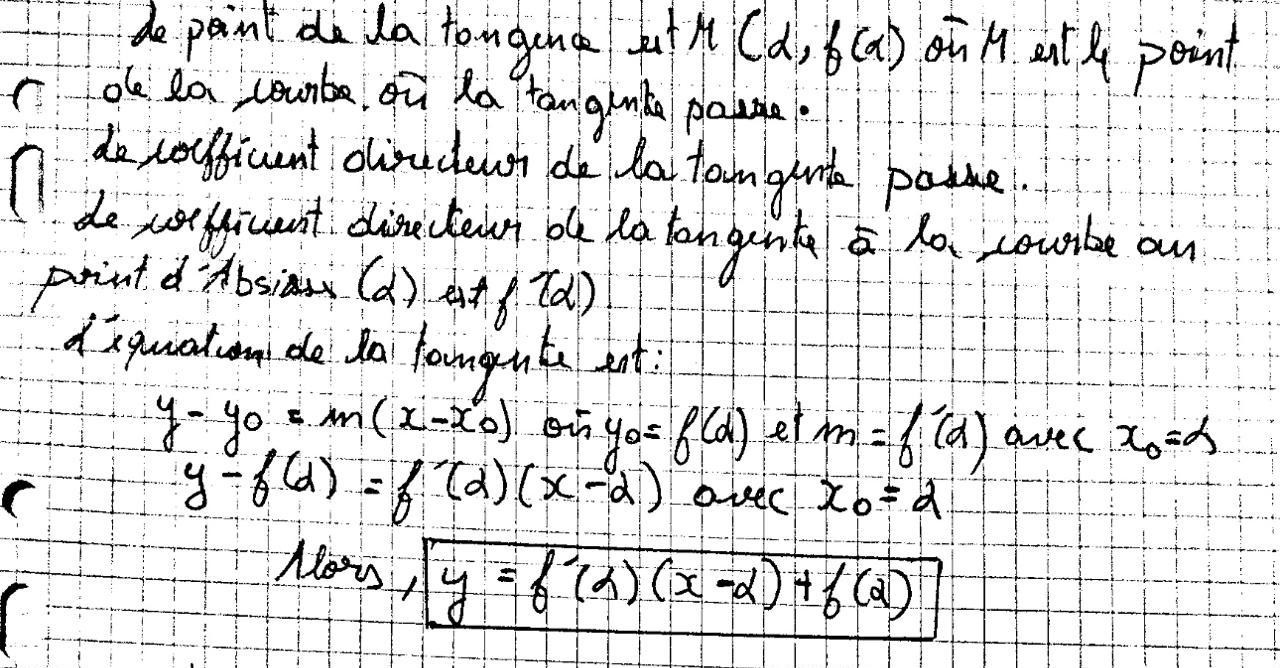 Le point de la tangence est M (α, f(α) où M est le point
de la courbe où la tangente passe.
Le coefficient directeur de la tangente passe.
Le coefficient directeur de la tangente à la courbe au
point d'Absisse (α) est f'(α)
L'équation de la tangente est:
y - y₀ = m(x-x₀) où y₀ = f(α) et m = f'(α) avec x₀=α
y - f(α) = f'(α)(x-α) avec x₀ = α
Alors, y = f'(α)(x-α)+f(α)